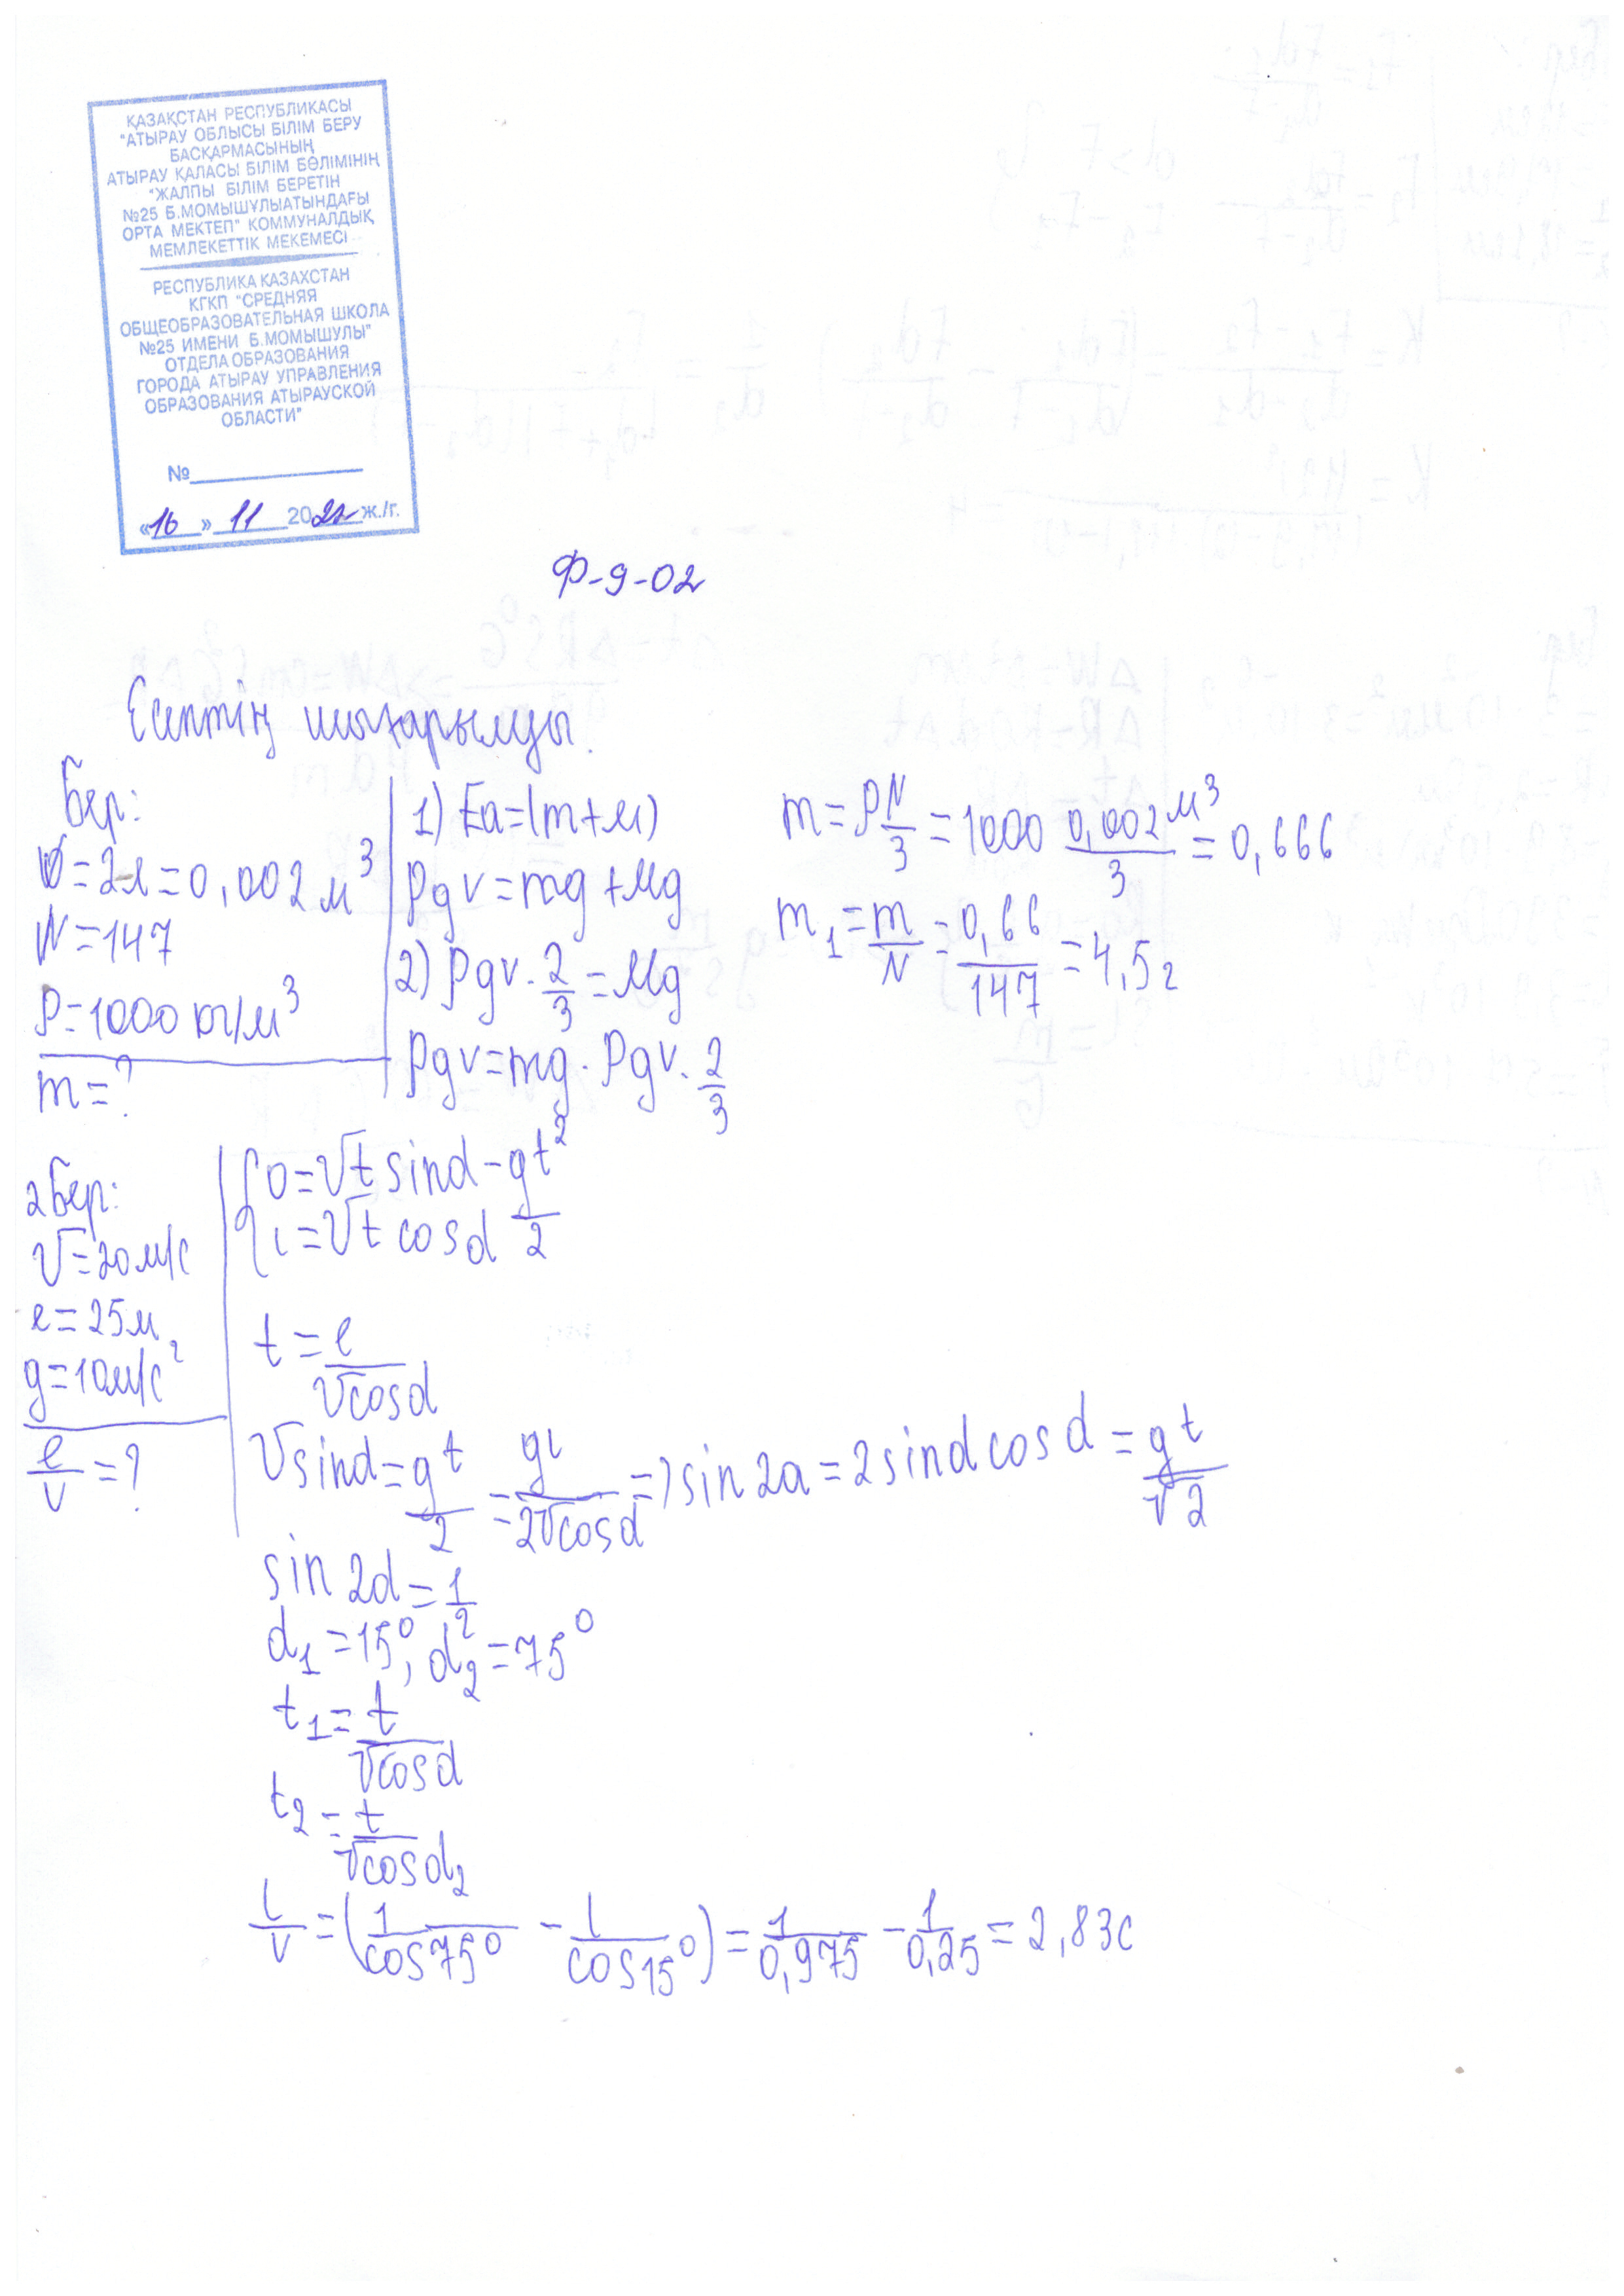 ҚАЗАҚСТАН РЕСПУБЛИКАСЫ
"АТЫРАУ ОБЛЫСЫ БІЛІМ БЕРУ
БАСҚАРМАСЫНЫҢ
АТЫРАУ ҚАЛАСЫ БІЛІМ БӨЛІМІНІҢ
"ЖАЛПЫ БІЛІМ БЕРЕТІН
№25 Б.МОМЫШҰЛЫАТЫНДАҒЫ
ОРТА МЕКТЕП" КОММУНАЛДЫҚ
МЕМЛЕКЕТТІК МЕКЕМЕСІ
РЕСПУБЛИКА КАЗАХСТАН
КГКП "СРЕДНЯЯ
ОБЩЕОБРАЗОВАТЕЛЬНАЯ ШКОЛА
№25 ИМЕНИ Б.МОМЫШУЛЫ"
ОТДЕЛА ОБРАЗОВАНИЯ
ГОРОДА АТЫРАУ УПРАВЛЕНИЯ
ОБРАЗОВАНИЯ АТЫРАУСКОЙ
ОБЛАСТИ"
№
«16» 11 2021 ж./г.
Ф-9-02
Есептің шығарылуы.
Бер:
V=2л=0,002м³
N=147
ρ=1000 кг/м³
m=?
1) Fa=(m+M)
ρgv=mg+Mg
2) ρgv·2/3=Mg
ρgv=mg·ρgv·2/3
m=ρN/3=1000 0,002м³/3=0,666
m₁=m/N=0,66/147=4,5г
2 Бер:
V=20м/с
l=25м
g=10м/с²
l/v=?
{0=Vt sind-gt²/2
l=Vt cosd
t=l/Vcosd
Vsind=gt/2=gl/2Vcosd=>sin2a=2sindcosd=gt/V2
sin2d=1/2
d₁=15°, d₂=75°
t₁=t/Vcosd
t₂=t/Vcosd₂
l/v=(1/cos75°-l/cos15°)=1/0,975-1/0,25=2,83с